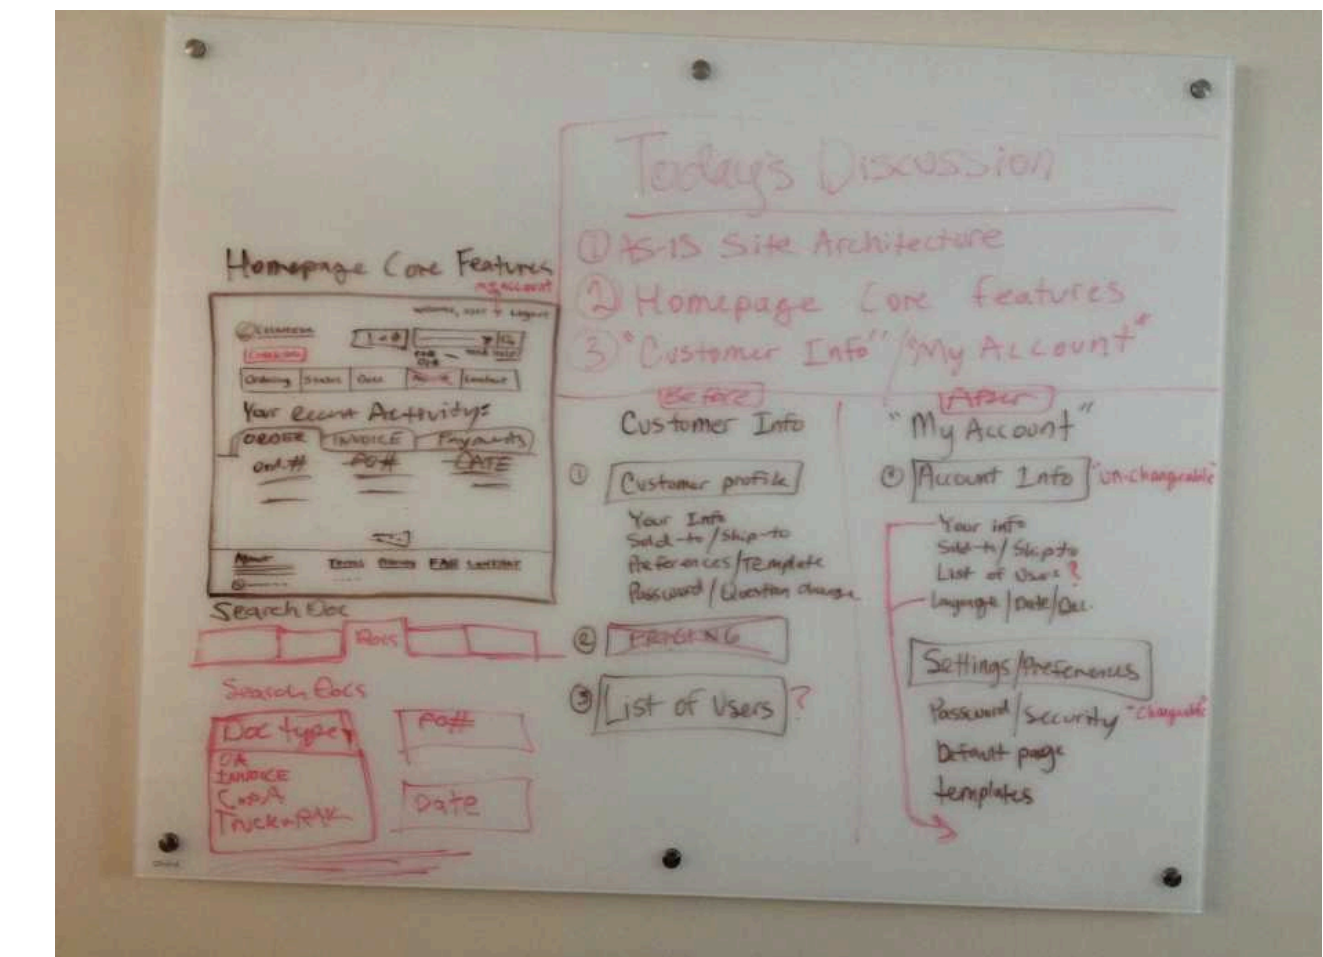 Today's Discussion
① AS-IS Site Architecture
② Homepage Core Features
③ "Customer Info"/"My Account"
Homepage Core Features
My Account
Welcome, user Logout
Ordering Status Docs Contact
Your Recent Activity:
ORDER INVOICE Payments
Ord.# PO# DATE
About Terms FAQ Contact
Search Doc
Docs
Search Docs
Doc type
OA
INVOICE
CofA
PO#
Date
Before
Customer Info
① Customer profile
Your Info
Sold-to/Ship-to
Preferences/Template
Password/Question change
② PRICING
③ List of Users ?
After
"My Account"
Account Info "un-changeable"
Your info
Sold-to/Ship to
List of Users ?
Language/Date/Dec.
Settings/Preferences
Password/Security "Changeable"
Default page
templates